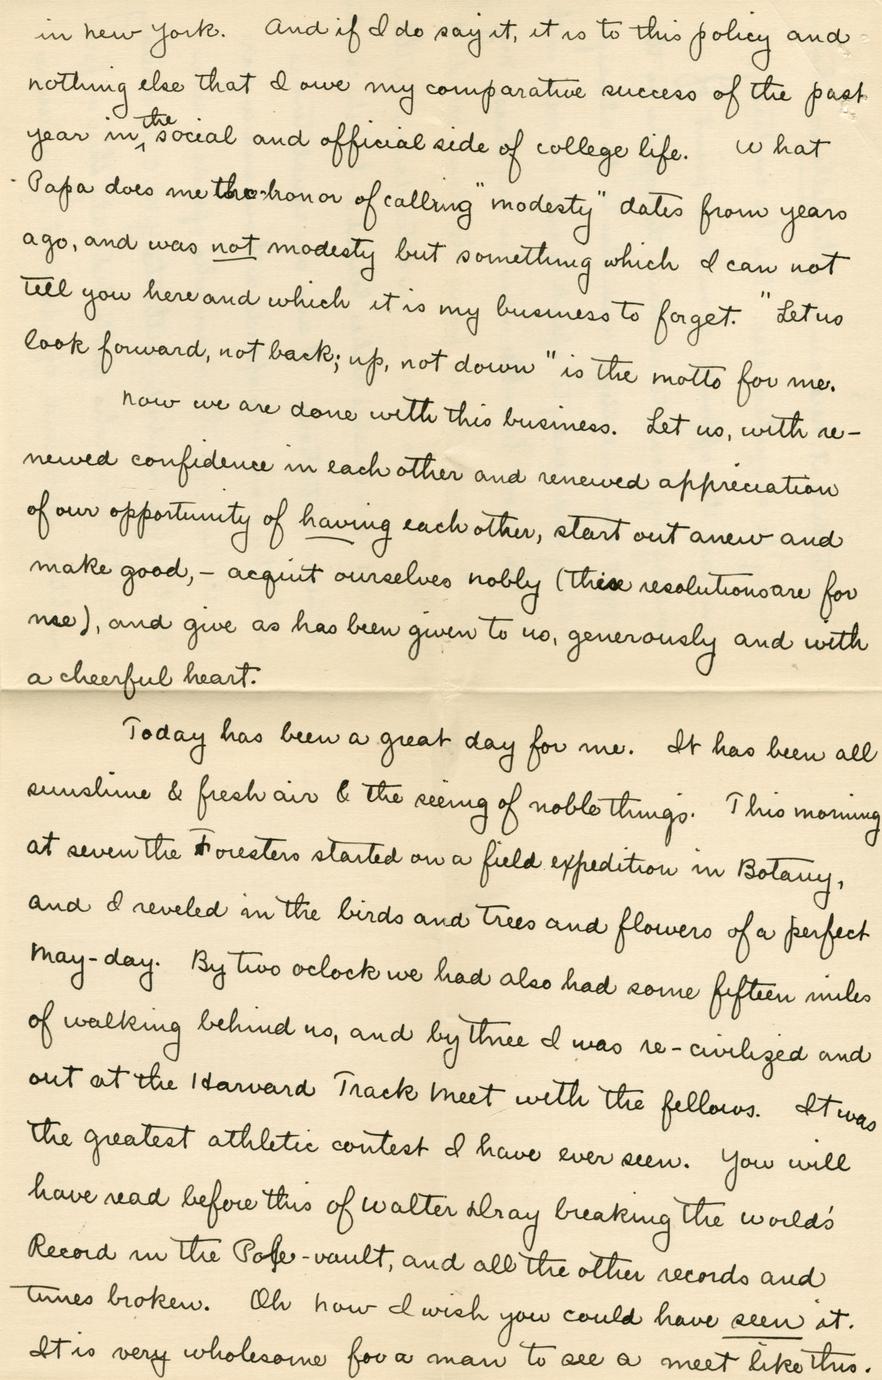 in New York. And if I do say it, it is to this policy and
nothing else that I owe my comparative success of the past
year in the social and official side of college life. What
Papa does me the honor of calling "modesty" dates from years
ago, and was not modesty but something which I can not
tell you here and which it is my business to forget. "Let us
look forward, not back; up, not down" is the motto for me.
Now we are done with this business. Let us, with re-
newed confidence in each other and renewed appreciation
of our opportunity of having each other, start out anew and
make good,- acquit ourselves nobly (these resolutions are for
me), and give as has been given to us, generously and with
a cheerful heart.
Today has been a great day for me. It has been all
sunshine & fresh air & the seeing of noble things. This morning
at seven the Foresters started on a field expedition in Botany,
and I reveled in the birds and trees and flowers of a perfect
May-day. By two oclock we had also had some fifteen miles
of walking behind us, and by three I was re-civilized and
out at the Harvard Track Meet with the fellows. It was
the greatest athletic contest I have ever seen. You will
have read before this of Walter Dray breaking the world's
Record in the Pole-vault, and all the other records and
times broken. Oh how I wish you could have seen it.
It is very wholesome for a man to see a meet like this.